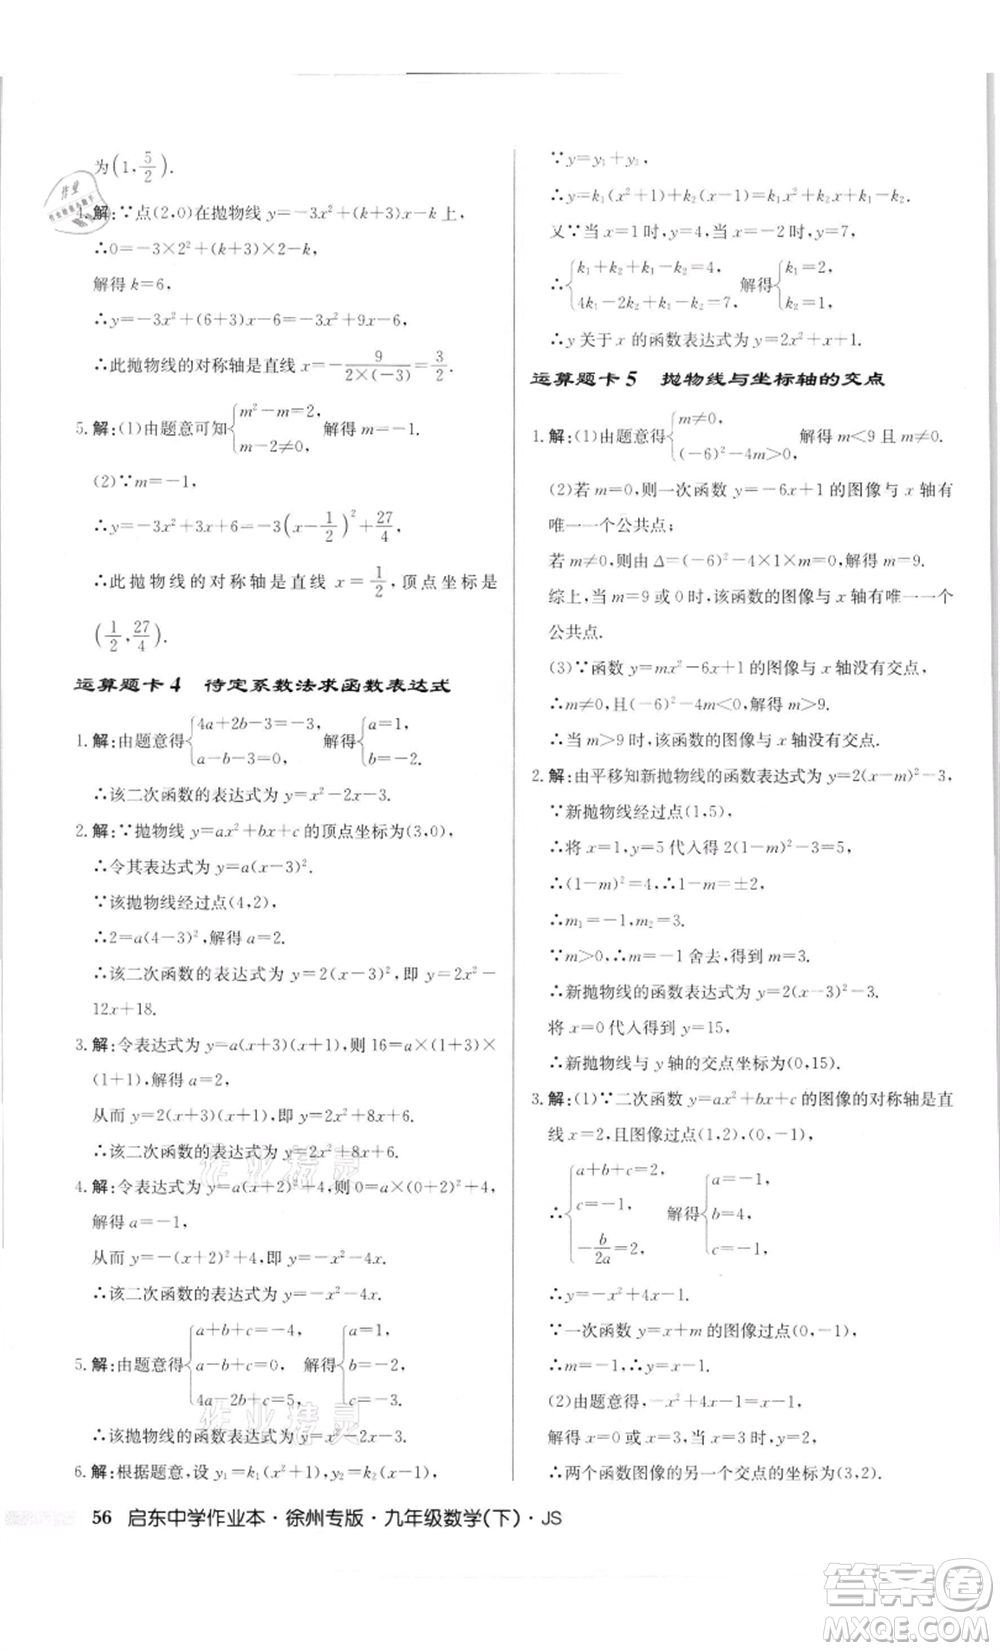 为(1,5/2).
4.解:∵点(2,0)在抛物线 y=-3x²+(k+3)x-k上,
∴0=-3×2²+(k+3)×2-k,
解得 k=6,
∴y=-3x²+(6+3)x-6=-3x²+9x-6,
∴此抛物线的对称轴是直线 x=-9/(2×(-3))=3/2.
5.解:(1)由题意可知{m²-m=2, m-2≠0, 解得 m=-1.
(2)∵m=-1,
∴y=-3x²+3x+6=-3(x-1/2)²+27/4,
∴此抛物线的对称轴是直线 x=1/2,顶点坐标是
(1/2,27/4).
运算题卡4 待定系数法求函数表达式
1.解:由题意得{4a+2b-3=-3, a-b-3=0, 解得{a=1, b=-2.
∴该二次函数的表达式为 y=x²-2x-3.
2.解:∵抛物线 y=ax²+bx+c 的顶点坐标为(3,0),
∴令其表达式为 y=a(x-3)².
∵该抛物线经过点(4,2),
∴2=a(4-3)²,解得 a=2.
∴该二次函数的表达式为 y=2(x-3)²,即 y=2x²-
12x+18.
3.解:令表达式为 y=a(x+3)(x+1),则 16=a×(1+3)×
(1+1),解得 a=2.
从而 y=2(x+3)(x+1),即 y=2x²+8x+6.
∴该二次函数的表达式为 y=2x²+8x+6.
4.解:令表达式为 y=a(x+2)²+4,则 0=a×(0+2)²+4,
解得 a=-1,
从而 y=-(x+2)²+4,即 y=-x²-4x.
∴该二次函数的表达式为 y=-x²-4x.
5.解:由题意得{a+b+c=-4, a-b+c=0, 4a-2b+c=5, 解得{a=1, b=-2, c=-3.
∴该抛物线的函数表达式为 y=x²-2x-3.
6.解:根据题意,设 y₁=k₁(x²+1),y₂=k₂(x-1).
∵y=y₁+y₂,
∴y=k₁(x²+1)+k₂(x-1)=k₁x²+k₂x+k₁-k₂.
又∵当 x=1时,y=4,当 x=2时,y=7,
∴{k₁+k₂+k₁-k₂=4, 4k₁-2k₂+k₁-k₂=7, 解得{k₁=2, k₂=1.
∴y关于 x 的函数表达式为 y=2x²+x+1.
运算题卡5 抛物线与坐标轴的交点
1.解:(1)由题意得{m≠0, (-6)²-4m>0, 解得 m<9且 m≠0.
(2)若 m=0,则一次函数 y=-6x+1的图像与 x 轴有
唯一一个公共点;
若 m≠0,则由 Δ=(-6)²-4×1×m=0,解得 m=9.
综上,当 m=9或0时,该函数的图像与 x 轴有唯一一个
公共点.
(3)∵函数 y=mx²-6x+1的图像与 x 轴没有交点,
∴m≠0,且(-6)²-4m<0,解得 m>9.
∴当 m>9时,该函数的图像与 x 轴没有交点.
2.解:由平移知新抛物线的函数表达式为 y=2(x-m)²-3,
∵新抛物线经过点(1,5),
∴将 x=1,y=5代入得2(1-m)²-3=5,
∴(1-m)²=4,∴1-m=±2,
∴m₁=-1,m₂=3.
∵m>0,∴m=-1舍去,得到 m=3.
∴新抛物线的函数表达式为 y=2(x-3)²-3.
将 x=0代入得到 y=15,
∴新抛物线与 y 轴的交点坐标为(0,15).
3.解:(1)∵二次函数 y=ax²+bx+c 的图像的对称轴是直
线 x=2,且图像过点(1,2),(0,-1),
∴{a+b+c=2, c=-1, -b/2a=2, 解得{a=-1, b=4, c=-1.
∴y=-x²+4x-1.
∵一次函数 y=x+m 的图像过点(0,-1),
∴m=-1,∴y=x-1.
(2)由题意得,-x²+4x-1=x-1,
解得 x=0或 x=3,当 x=3时,y=2,
∴两个函数图像的另一个交点的坐标为(3,2).
56 启东中学作业本·徐州专版·九年级数学(下)·JS
作业精灵
作业精灵
答案卷
MXQE.COM